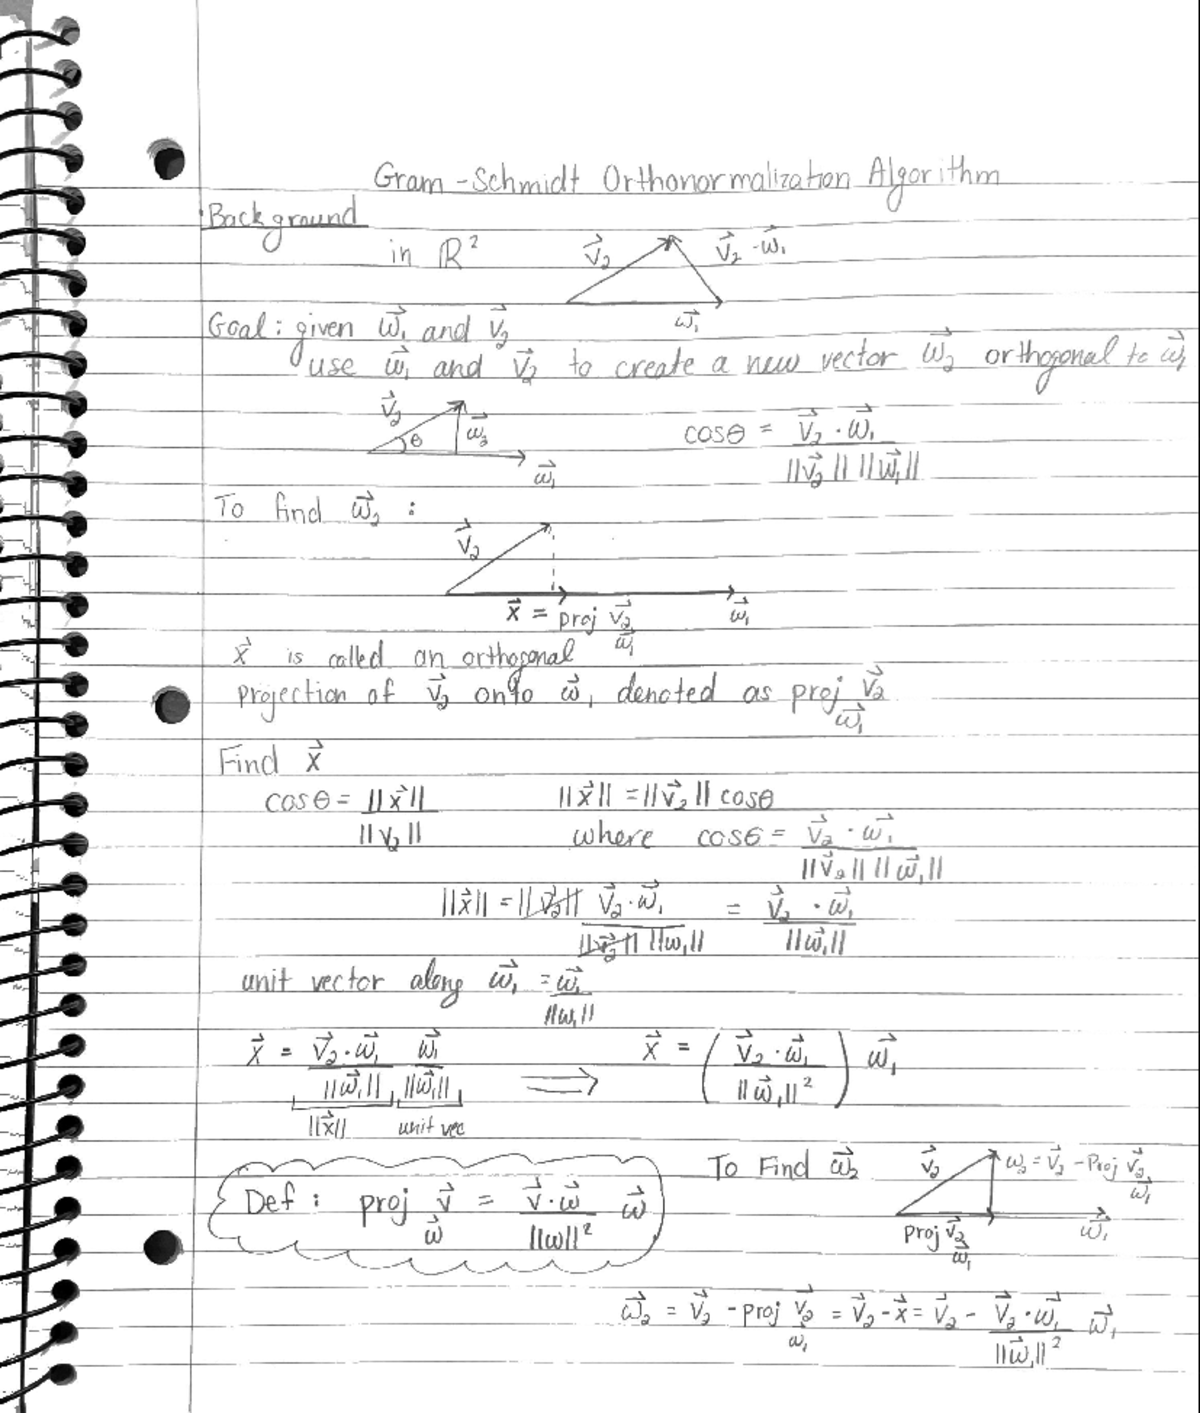 Gram-Schmidt Orthonormalization Algorithm
Background
in ℝ² v⃗₂ v⃗₂ - w⃗₁
w⃗₁
Goal: given w⃗₁ and v⃗₂
use w⃗₁ and v⃗₂ to create a new vector w⃗₂ orthogonal to w⃗₁
v⃗₂ θ w⃗₂ w⃗₁
cosθ = v⃗₂ · w⃗₁ / ||v⃗₂|| ||w⃗₁||
To find w⃗₂ :
v⃗₂
x⃗ = proj_w⃗₁ v⃗₂ w⃗₁
x⃗ is called an orthogonal
projection of v⃗₂ onto w⃗₁ denoted as proj_w⃗₁ v⃗₂
Find x⃗
cosθ = ||x⃗|| / ||v₂|| ||x⃗|| = ||v⃗₂|| cosθ
where cosθ = v⃗₂ · w⃗₁ / ||v⃗₂|| ||w⃗₁||
||x⃗|| = ||v⃗₂|| v⃗₂ · w⃗₁ / ||v⃗₂|| ||w₁|| = v⃗₂ · w⃗₁ / ||w⃗₁||
unit vector along w⃗₁ = w⃗₁ / ||w₁||
x⃗ = v⃗₂ · w⃗₁ / ||w⃗₁|| w⃗₁ / ||w⃗₁|| ⟹ x⃗ = ( v⃗₂ · w⃗₁ / ||w⃗₁||² ) w⃗₁
||x⃗|| unit vec
Def: proj_w⃗ v⃗ = v⃗ · w⃗ / ||w||² w⃗
To Find w⃗₂ v⃗₂ w₂ = v⃗₂ - Proj_w⃗₁ v⃗₂
Proj_w⃗₁ v⃗₂ w⃗₁
w⃗₂ = v⃗₂ - proj_w⃗₁ v⃗₂ = v⃗₂ - x⃗ = v⃗₂ - v⃗₂ · w⃗₁ / ||w⃗₁||² w⃗₁